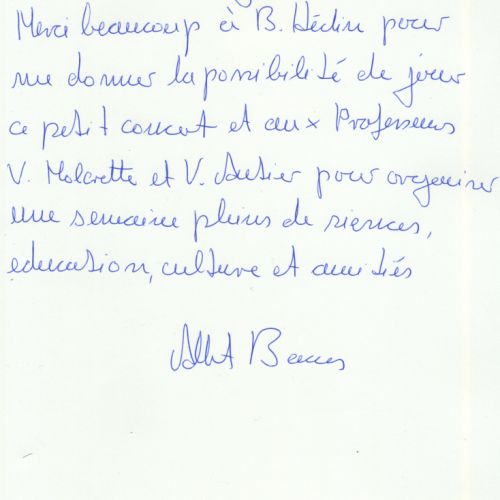 Merci beaucoup à B. Hédin pour
me donner la possibilité de jouer
ce petit concert et aux Professeurs
V. Molcrette et V. Autier pour organiser
une semaine pleins de siences,
education, culture et amitiés
Albert